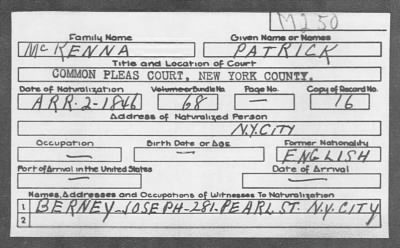 M250
Family Name Given Name or Names
McKENNA PATRICK
Title and Location of Court
COMMON PLEAS COURT, NEW YORK COUNTY.
Date of Naturalization Volume or Bundle No. Page No. Copy of Record No.
APR-2-1846 68 — 16
Address of Naturalized Person
N.Y.CITY
Occupation Birth Date or Age Former Nationality
— — ENGLISH
Port of Arrival in the United States Date of Arrival
— —
Names, Addresses and Occupations of Witnesses To Naturalization
1 BERNEY-JOSEPH-281-PEARL ST. N.Y.CITY
2